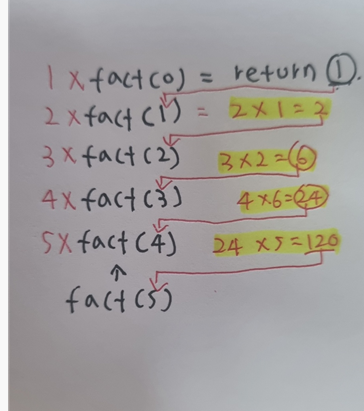 1 × fact(0) = return ①.
2 × fact(1) = 2 × 1 = 2
3 × fact(2) 3 × 2 = 6
4 × fact(3) 4 × 6 = 24
5 × fact(4) 24 × 5 = 120
↑
fact(5)